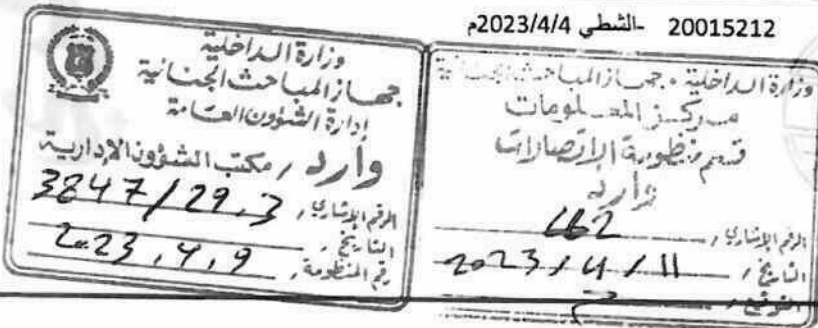 20015212 -الشطي 2023/4/4م
وزارة الداخلية - جهاز المباحث الجنائية
مركز المعلومات
قسم منظومة الإتصارات
وارد
الرقم الإشاري / 662
التاريخ / 2023 / 4 / 11
التوقيع /
وزارة الداخلية
جهاز المباحث الجنائية
إدارة الشؤون العامة
وارد / مكتب الشؤون الإدارية
الرقم الإشاري / 3847/29.3
التاريخ / 2023.4.9
رقم المنظومة /